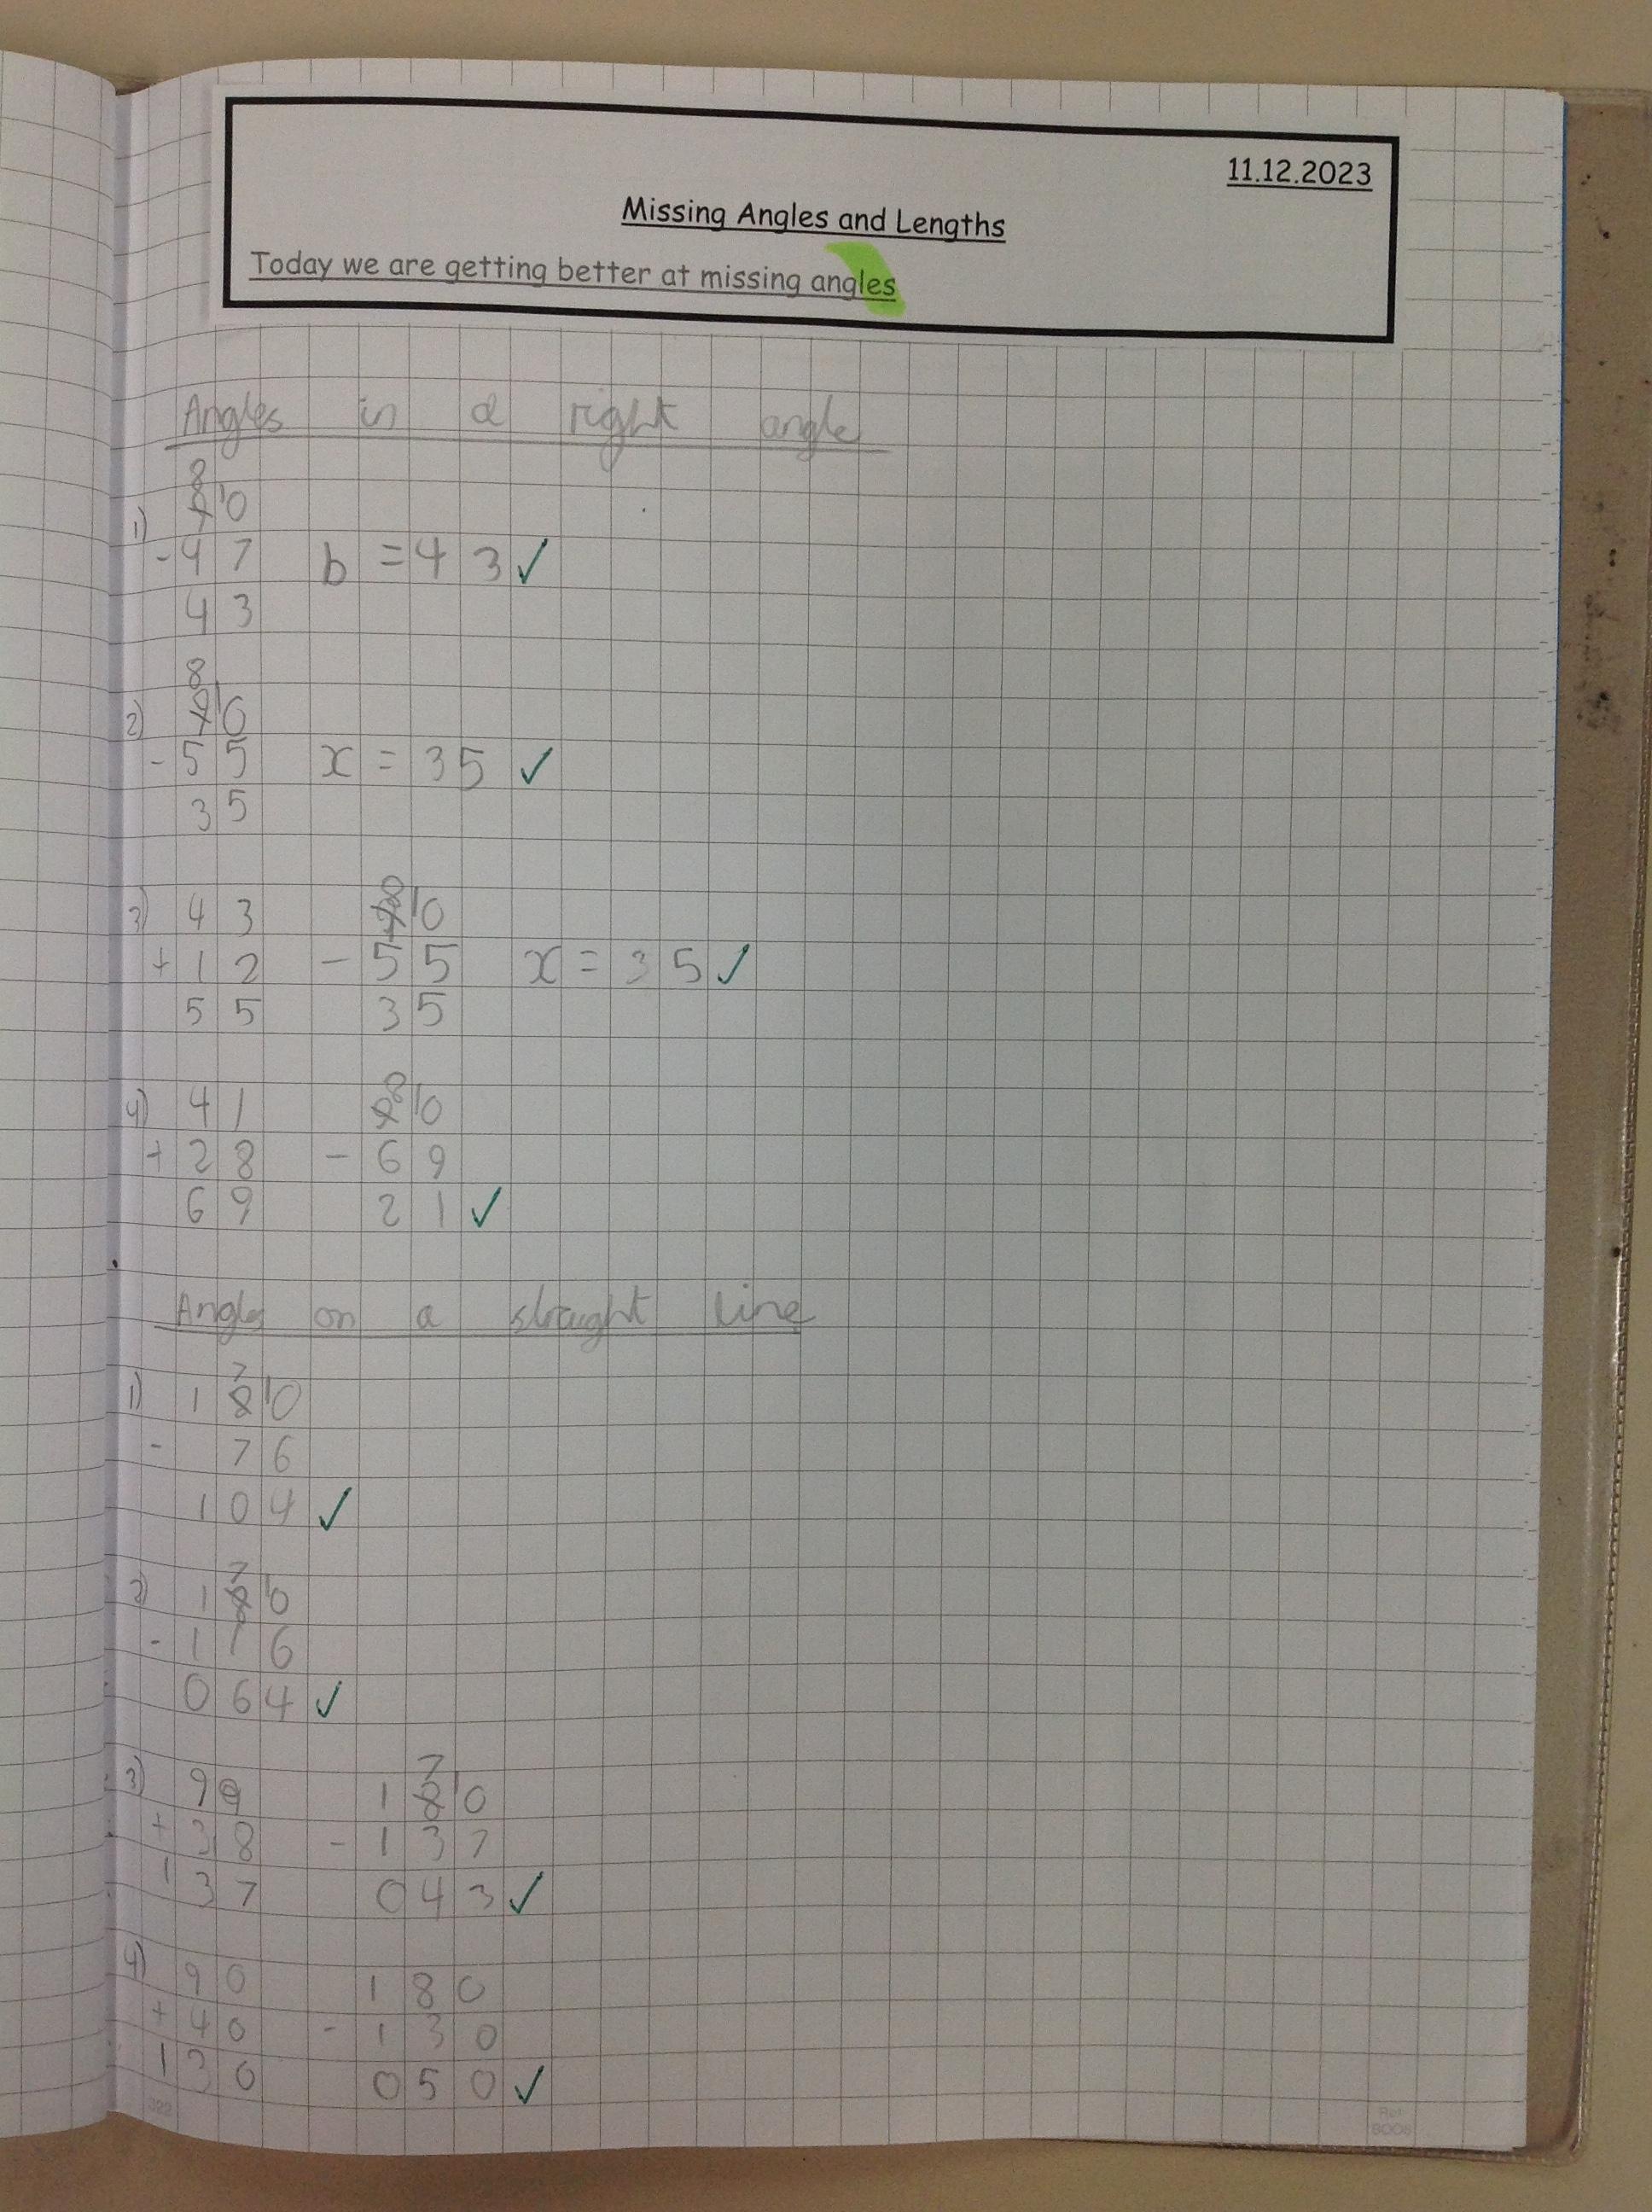 11.12.2023
Missing Angles and Lengths
Today we are getting better at missing angles
Angles in a right angle
8
1) 9 10
- 4 7 b = 4 3 ✓
4 3
8
2) 9 10
- 5 5 x = 3 5 ✓
3 5
8
3) 4 3 9 10
+ 1 2 - 5 5 x = 3 5 ✓
5 5 3 5
8
4) 4 1 9 10
+ 2 8 - 6 9
6 9 2 1 ✓
Angles on a straight line
7
1) 1 8 10
- 7 6
1 0 4 ✓
7
2) 1 8 10
- 1 1 6
0 6 4 ✓
7
3) 9 9 1 8 10
+ 3 8 - 1 3 7
1 3 7 0 4 3 ✓
4) 9 0 1 8 0
+ 4 0 - 1 3 0
1 3 0 0 5 0 ✓